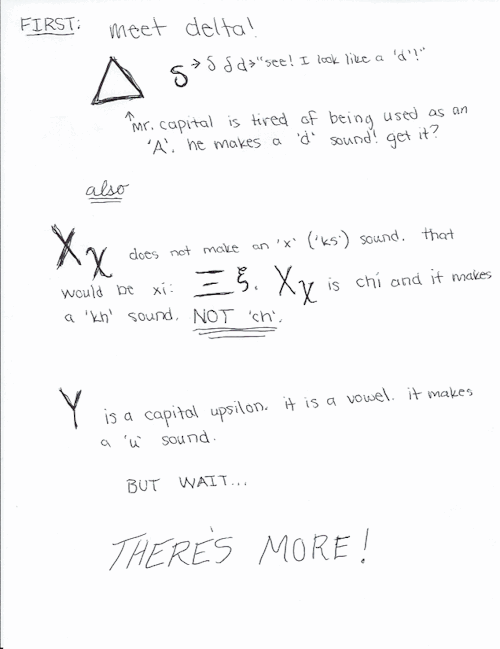 FIRST: meet delta!
Δ δ → δ δ d → "see! I look like a 'd'!"
↑ Mr. capital is tired of being used as an
'A'. he makes a 'd' sound! get it?
also
Χ χ does not make an 'x' ('ks') sound. that
would be xi: Ξ ξ. Χ χ is chi and it makes
a 'kh' sound. NOT 'ch'.
Υ is a capital upsilon. it is a vowel. it makes
a 'u' sound.
BUT WAIT...
THERE'S MORE!